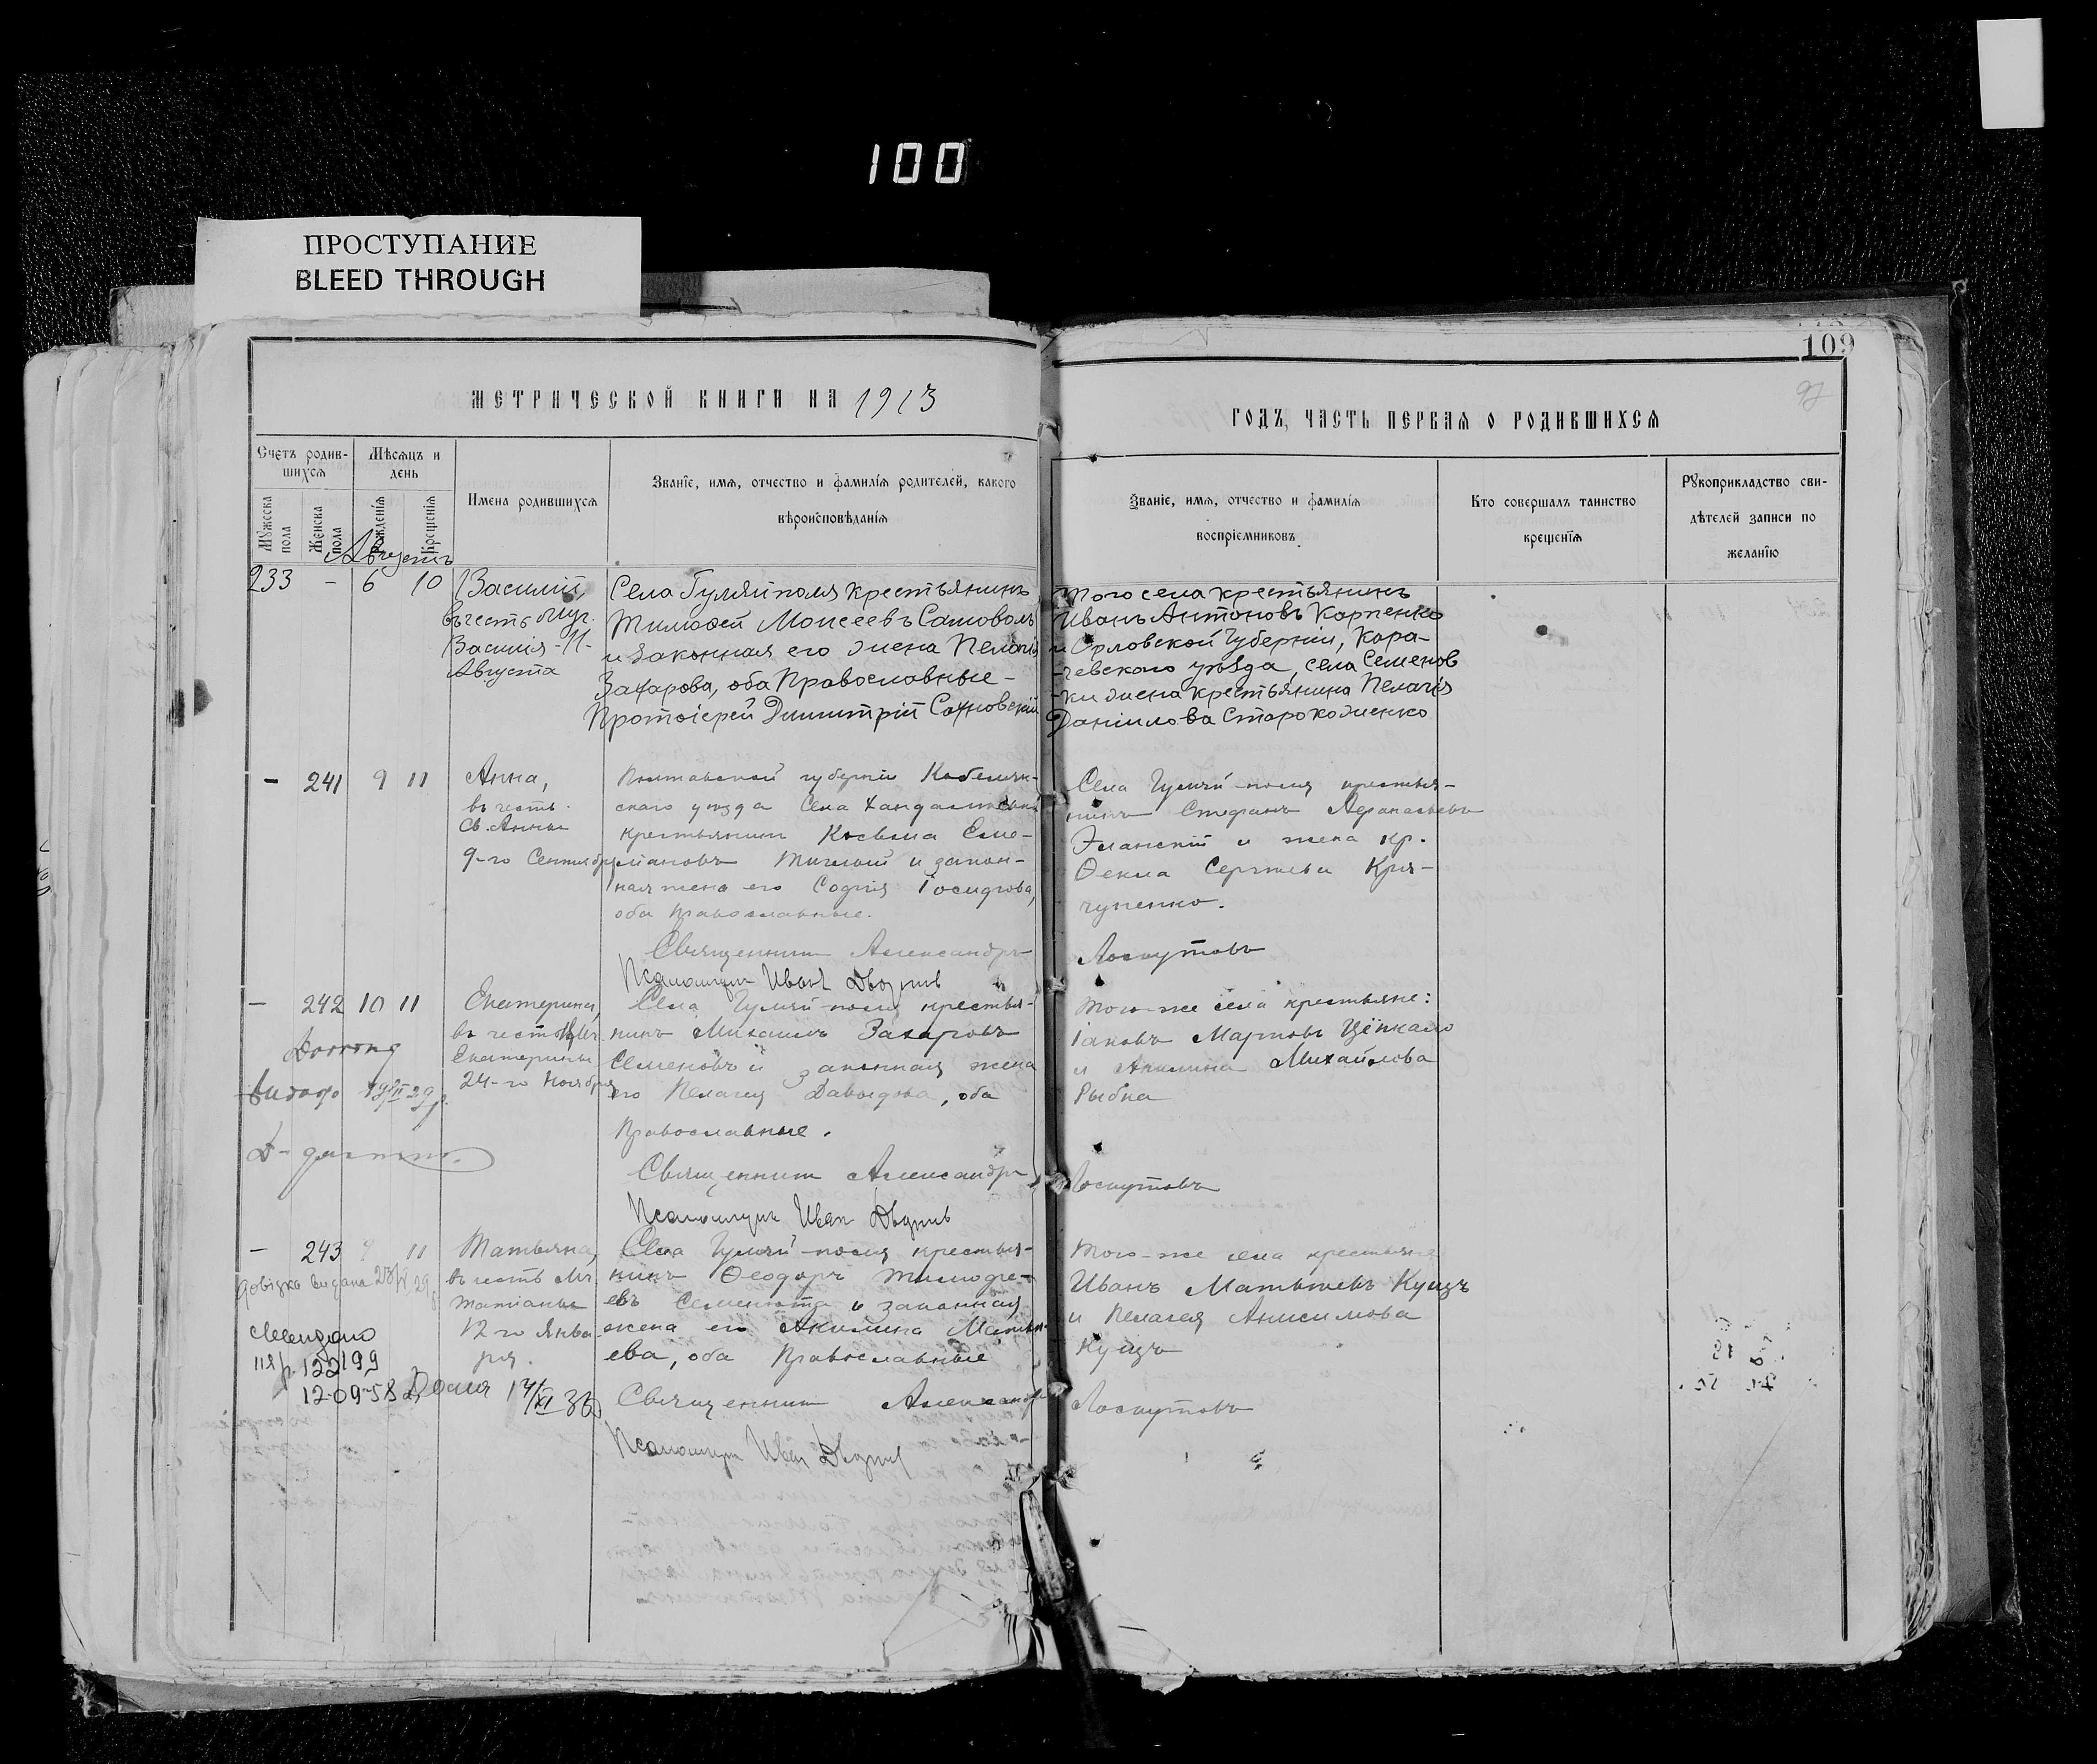 100
ПРОСТУПАНИЕ
BLEED THROUGH
109
97
МЕТРИЧЕСКОЙ КНИГИ НА 1913
ГОДЪ, ЧАСТЬ ПЕРВАЯ О РОДИВШИХСЯ
Счетъ родив-
шихся
Мѣсяцъ и
день
Мужеска
пола
Женска
пола
Рожденія
Крещенія
Имена родившихся
Званіе, имя, отчество и фамилія родителей, какого
вѣроисповѣданія
Званіе, имя, отчество и фамилія
воспріемниковъ
Кто совершалъ таинство
крещенія
Рукоприкладство сви-
дѣтелей записи по
желанію
Августъ
233 - 6 10
Василій,
въ честь
Василія - 11 -
Августа
Села Гуляйполя крестьянинъ
Тимоѳей Моисеевъ Самоволъ
и законная его жена Пелагія
Захарова, оба Православные -
Протоіерей Димитрій Сахновскій
того села крестьянинъ
Иванъ Антоновъ Карпенко
и Орловской Губерніи, Кара-
-чевского уѣзда, села Семенов
-ки жена крестьянина Пелагія
Даніилова Старокоженко
- 241 9 11
Анна,
въ честь
Св. Анны
9-го Сентября
Полтавской губерніи Кобеляк-
скаго уѣзда Села
крестьянинъ Косьма Еме-
ліановъ и закон-
ная жена его Софія Іосифова,
оба православные.
Священникъ Александръ
Псаломщик Иван
Села Гуляй-поля крестья-
нинъ Стефанъ Аѳанасьевъ
и жена кр.
Ѳекла Сергѣева Кри-
чупенко.
Лоскутовъ
- 242 10 11
Екатерина,
въ честь
Екатерины
24-го Ноября
Села Гуляй-поля крестья-
нинъ Михаилъ Захаровъ
Семеновъ и законная жена
его Пелагея Давыдова, оба
Православные.
Священникъ Александръ
Псаломщик Иван
Того-же села крестьяне:
Іаковъ Марковъ
и Акилина Михайлова
Рыбка
Лоскутовъ
- 243 9 11
Татьяна,
въ честь Мч.
Татіаны
12-го Янва
ря.
довідка видана
12-09-58
Села Гуляй-поля крестья-
нинъ Ѳеодоръ Тимоѳе-
евъ Семенюта и законная
жена его Акилина Матвѣ-
ева, оба Православные
Священникъ Александръ
Псаломщик Иван
Того-же села крестьяне
Иванъ Матвѣевъ Кущъ
и Пелагея Анисимова
Кущъ
Лоскутовъ